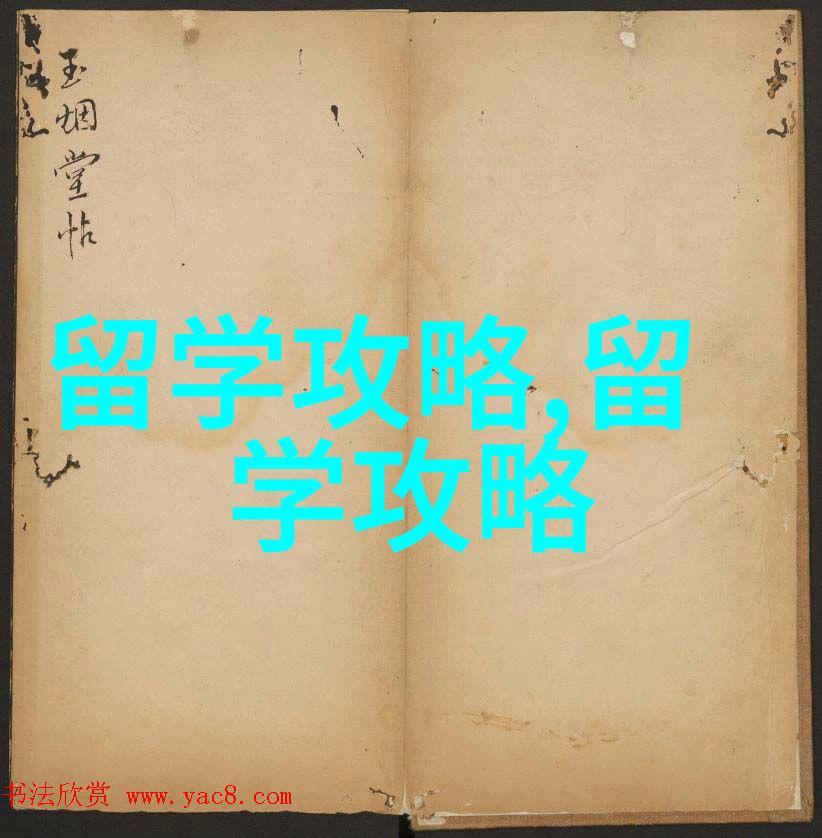 玉烟堂帖
留学攻略,留
学攻略
书法欣赏 www.yac8.com